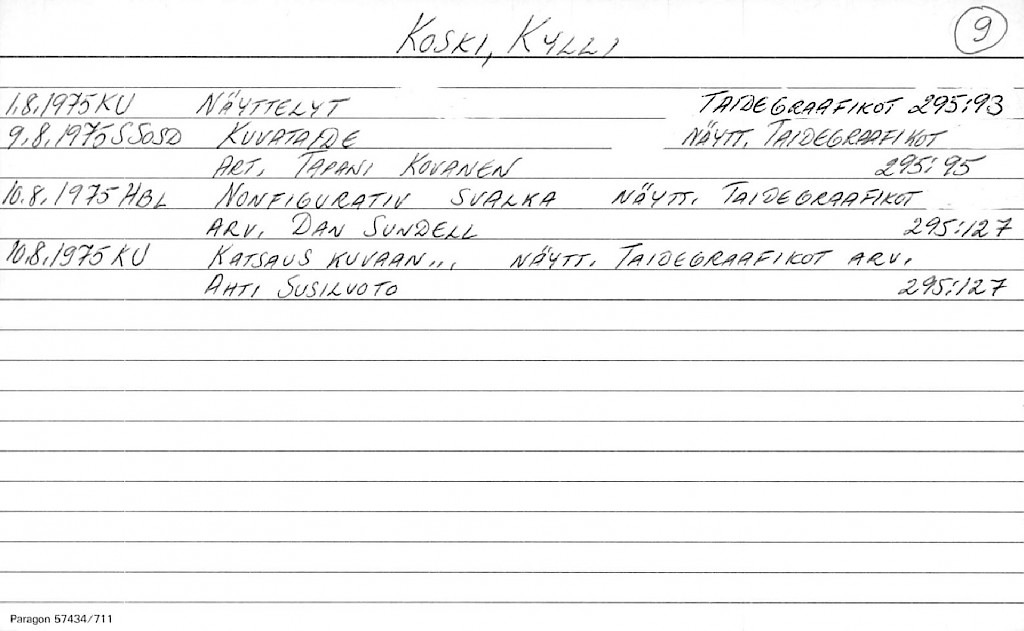 KOSKI, KYLLI 9
1.8.1975 KU NÄYTTELYT TAIDEGRAAFIKOT 295:93
9.8.1975 SSOSD KUVATAIDE NÄYTT. TAIDEGRAAFIKOT
ART. TAPANI KOVANEN 295:95
10.8.1975 HBL NONFIGURATIV SVALKA NÄYTT. TAIDEGRAAFIKOT
ARV. DAN SUNDELL 295:127
10.8.1975 KU KATSAUS KUVAAN... NÄYTT. TAIDEGRAAFIKOT ARV.
AHTI SUSILUOTO 295:127
Paragon 57434/711